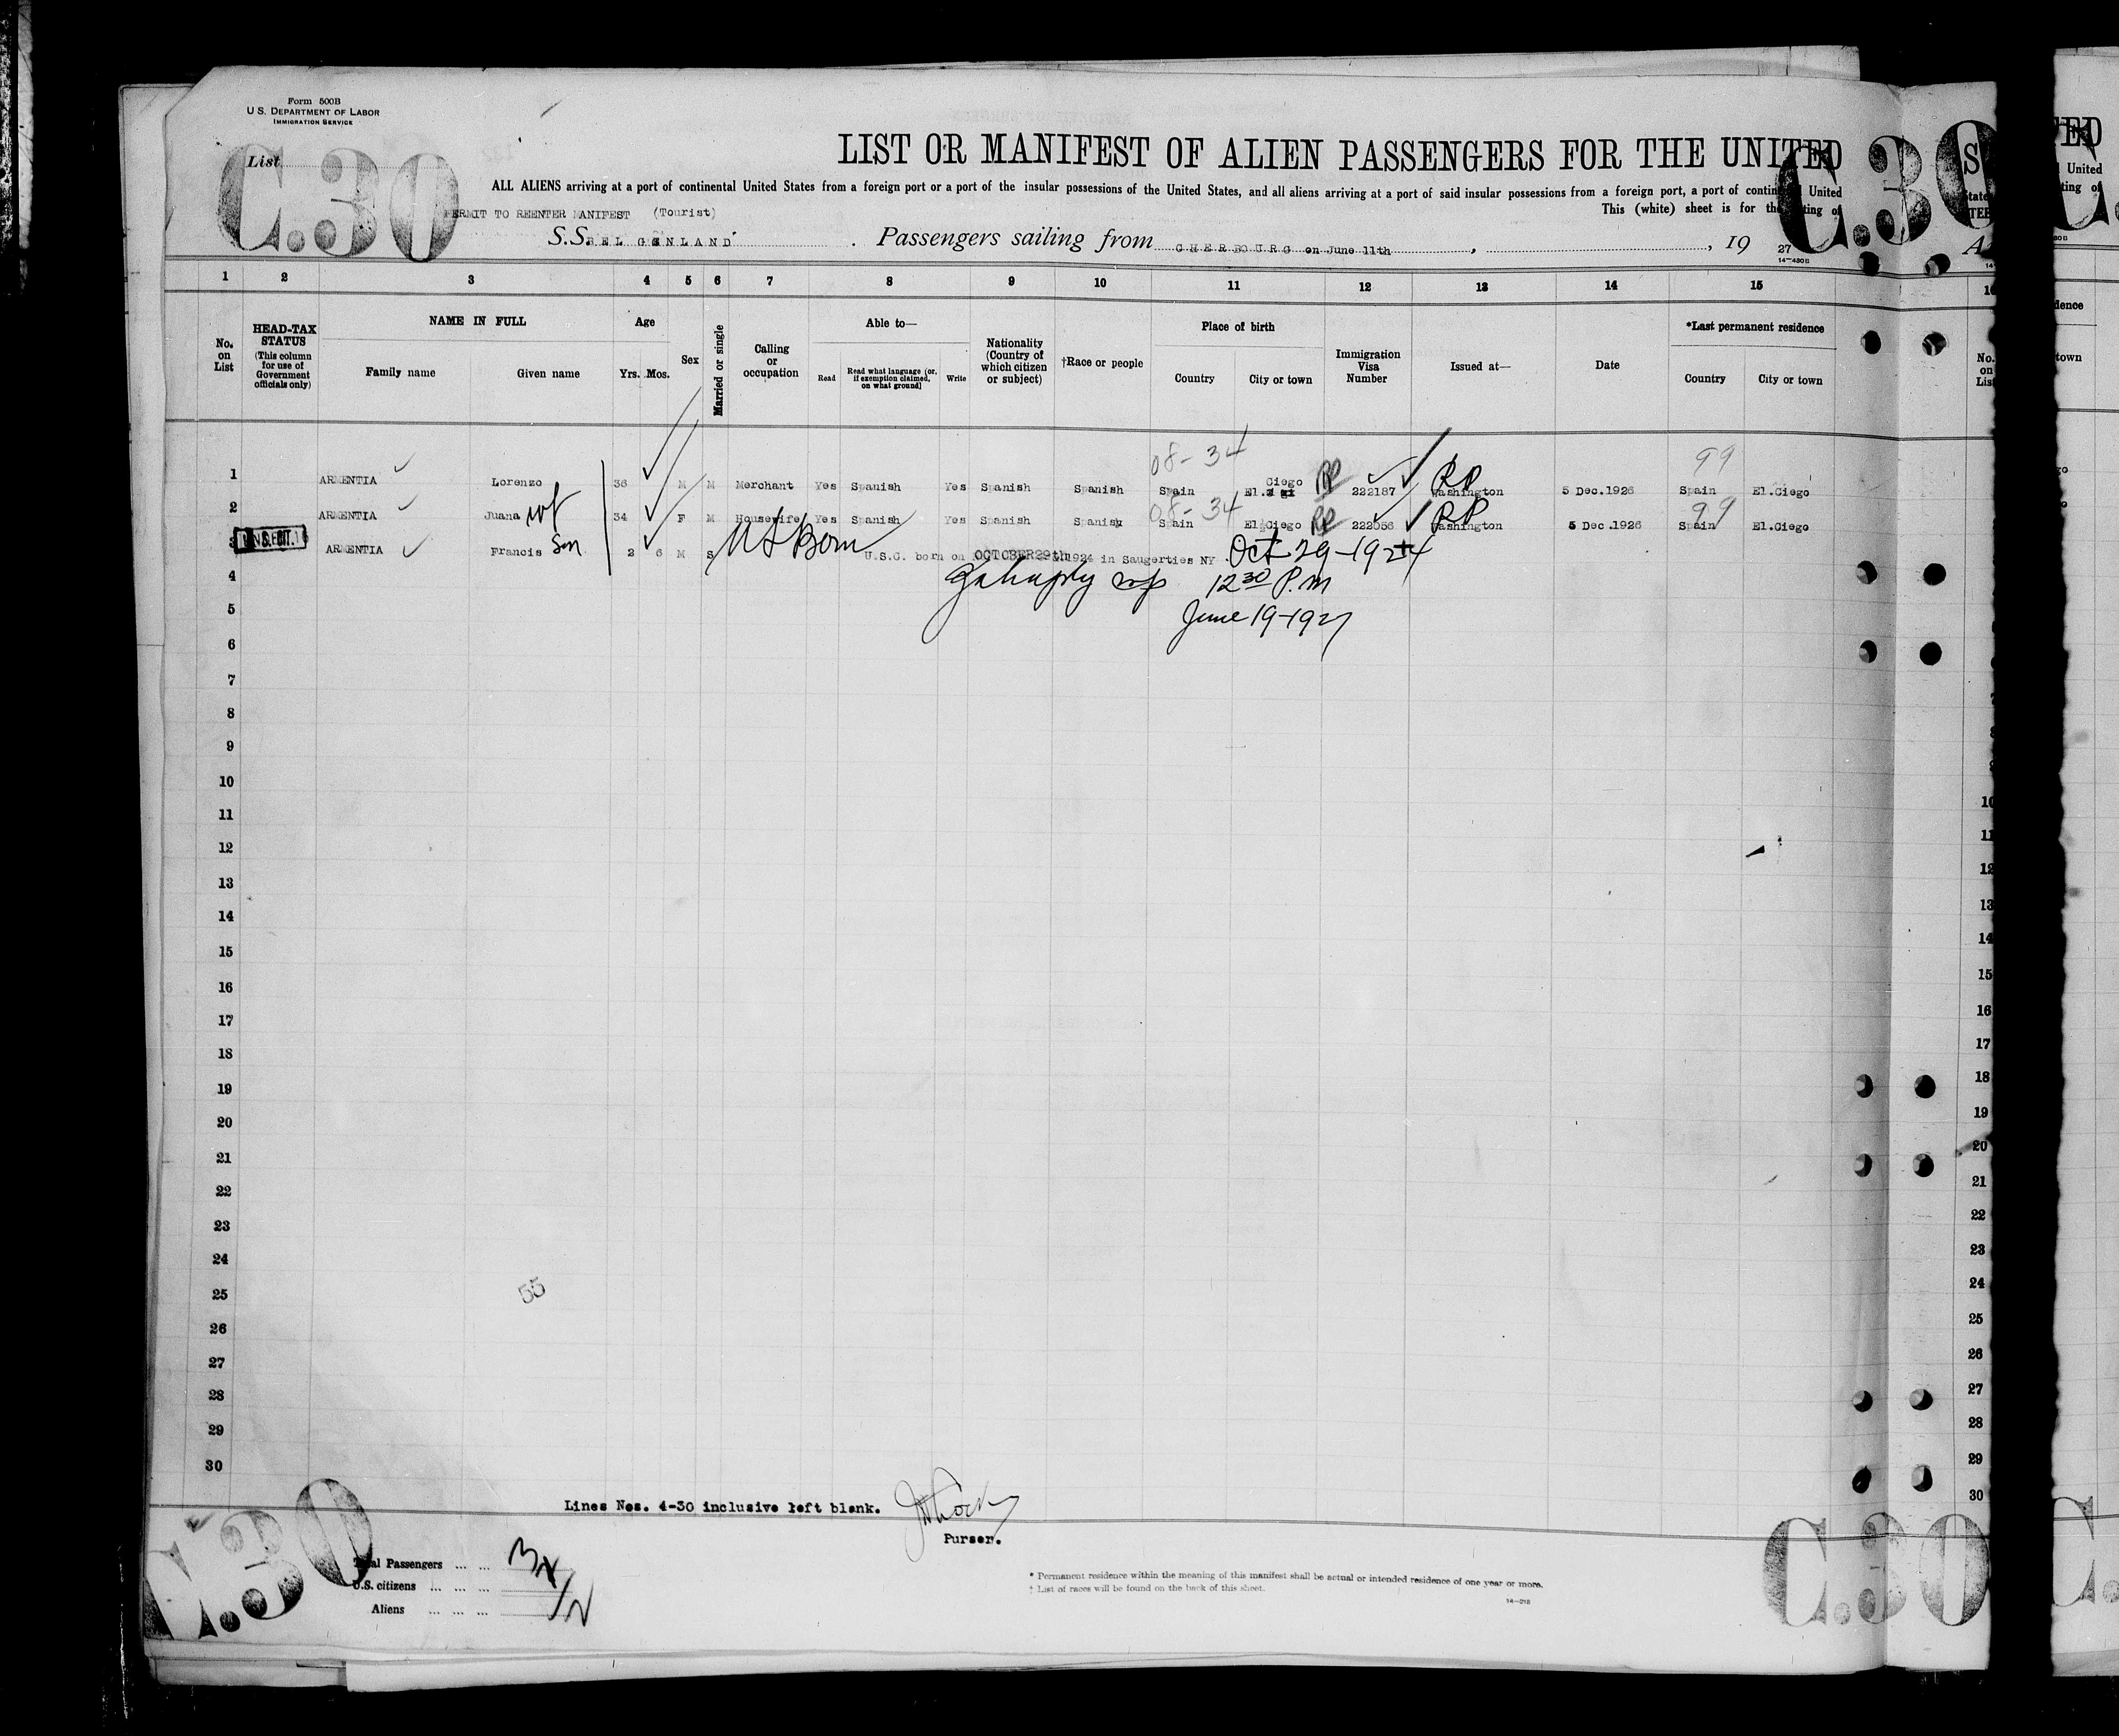 Form 500B
U.S. DEPARTMENT OF LABOR
IMMIGRATION SERVICE
List
C.30
C.30
LIST OR MANIFEST OF ALIEN PASSENGERS FOR THE UNITED
ALL ALIENS arriving at a port of continental United States from a foreign port or a port of the insular possessions of the United States, and all aliens arriving at a port of said insular possessions from a foreign port, a port of continental United
PERMIT TO REENTER MANIFEST (Tourist)
This (white) sheet is for the listing of
S.S. BELGENLAND. Passengers sailing from CHERBOURG on June 11th, 19 27
14-430B
1 2 3 4 5 6 7 8 9 10 11 12 13 14 15
No. on List
HEAD-TAX STATUS (This column for use of Government officials only)
NAME IN FULL
Family name Given name
Age
Yrs. Mos.
Sex
Married or single
Calling or occupation
Able to—
Read Read what language (or, if exemption claimed, on what ground) Write
Nationality (Country of which citizen or subject)
†Race or people
Place of birth
Country City or town
Immigration Visa Number
Issued at—
Date
*Last permanent residence
Country City or town
No. on List
08-34 99
1 ARMENTIA Lorenzo 36 M M Merchant Yes Spanish Yes Spanish Spanish Spain El. Ciego RP 222187 RP Washington 5 Dec.1926 Spain El.Ciego
08-34 99
2 ARMENTIA Juana wf 34 F M Housewife Yes Spanish Yes Spanish Spanish Spain El Ciego RP 222056 RP Washington 5 Dec.1926 Spain El.Ciego
3 ARMENTIA Francis Son 2 6 M S US Born U.S.C. born on OCTOBER 29th 1924 in Saugerties NY Oct 29-1924
4 12 30 P.m
5 June 19-1927
6
7
8
9
10
11
12
13
14
15
16
17
18
19
20
21
22
23
24
25 55
26
27
28
29
30
Lines Nos. 4-30 inclusive left blank.
Purser.
Total Passengers ... ... 3
U.S. citizens ... ... ... 1
Aliens ... ... ... 2
* Permanent residence within the meaning of this manifest shall be actual or intended residence of one year or more.
† List of races will be found on the back of this sheet.
14-218
C.30
C.30